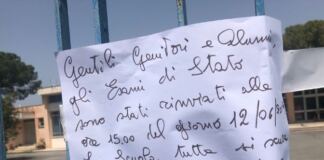 Gentili Genitori e Alunni,
gli Esami di Stato
sono stati rinviati alle
ore 15.00 del giorno 12/06/
la Scuola tutta si scusa